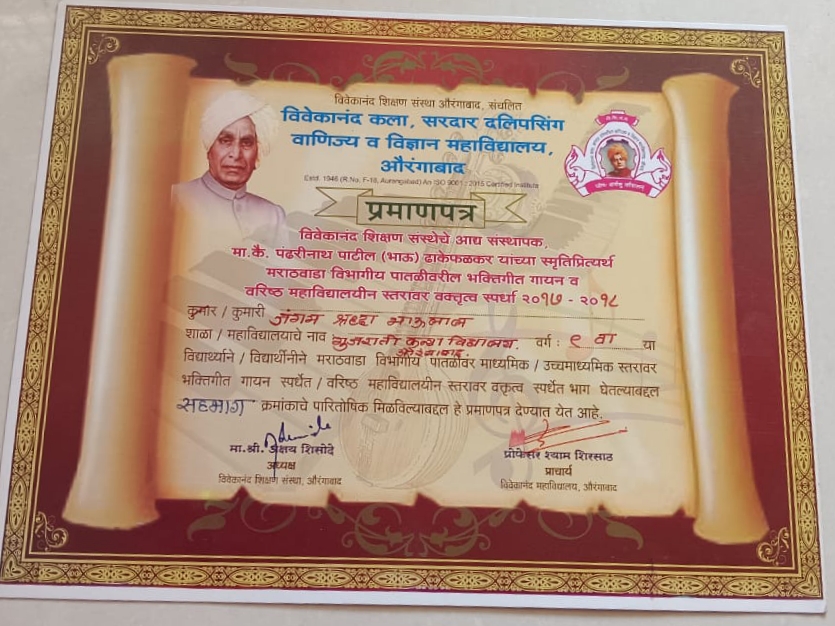 विवेकानंद शिक्षण संस्था औरंगाबाद, संचलित
विवेकानंद कला, सरदार दलिपसिंग
वाणिज्य व विज्ञान महाविद्यालय,
औरंगाबाद
Estd. 1946 (R.No. F-16, Aurangabad) An ISO 9001 : 2015 Certified Institute
प्रमाणपत्र
विवेकानंद शिक्षण संस्थेचे आद्य संस्थापक,
मा.कै. पंढरीनाथ पाटील (भाऊ) ढाकेफळकर यांच्या स्मृतिप्रित्यर्थ
मराठवाडा विभागीय पातळीवरील भक्तिगीत गायन व
वरिष्ठ महाविद्यालयीन स्तरावर वक्तृत्व स्पर्धा २०१७ - २०१८
कुमार / कुमारी जंगम श्रध्दा भाऊलाल
शाळा / महाविद्यालयाचे नाव गुजराती कन्या विद्यालय. वर्ग : ९ वा या
औरंगाबाद.
विद्यार्थ्याने / विद्यार्थीनीने मराठवाडा विभागीय पातळीवर माध्यमिक / उच्चमाध्यमिक स्तरावर
भक्तिगीत गायन स्पर्धेत / वरिष्ठ महाविद्यालयीन स्तरावर वक्तृत्व स्पर्धेत भाग घेतल्याबद्दल
सहभाग क्रमांकाचे पारितोषिक मिळविल्याबद्दल हे प्रमाणपत्र देण्यात येत आहे.
मा.श्री. अक्षय शिसोदे
अध्यक्ष
विवेकानंद शिक्षण संस्था, औरंगाबाद
प्रोफेसर श्याम शिरसाठ
प्राचार्य
विवेकानंद महाविद्यालय, औरंगाबाद